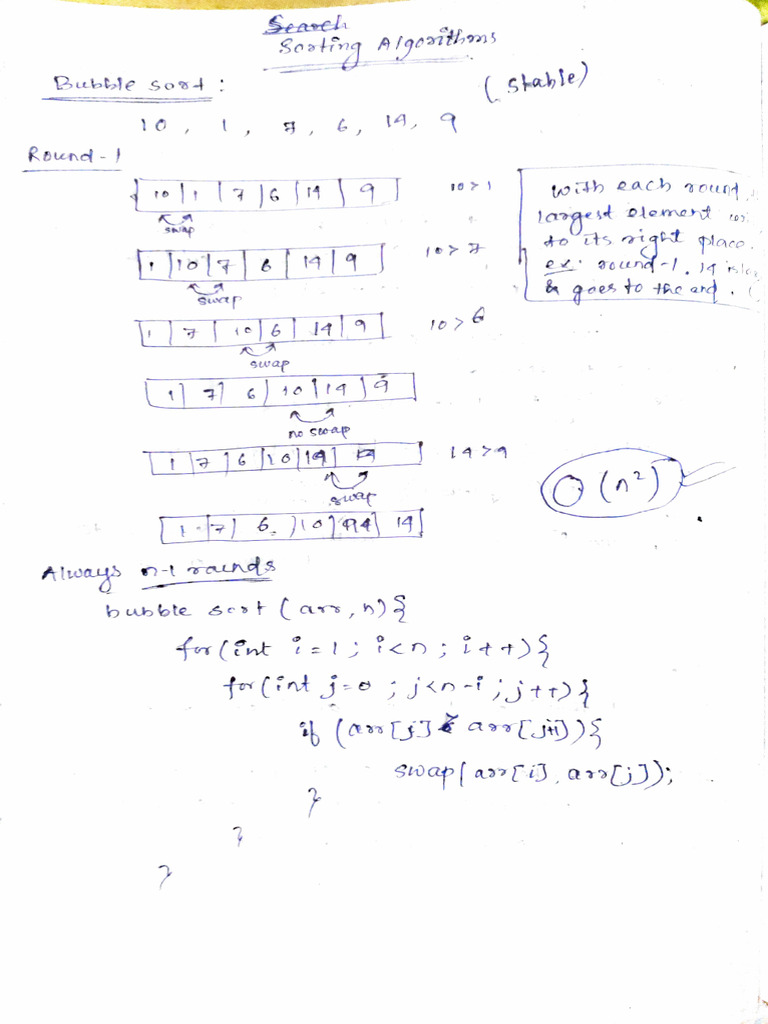 Search
Sorting Algorithms
Bubble sort :
(stable)
10 , 1 , 7 , 6 , 14 , 9
Round-1
10 | 1 | 7 | 6 | 14 | 9
10 > 1
swap
1 | 10 | 7 | 6 | 14 | 9
10 > 7
swap
1 | 7 | 10 | 6 | 14 | 9
10 > 6
swap
1 | 7 | 6 | 10 | 14 | 9
no swap
1 | 7 | 6 | 10 | 14 |
14 > 9
swap
1 | 7 | 6 | 10 | | 14
with each round
largest element
to its right place.
ex: round-1. 14 is
& goes to the end.
O(n²)
Always n-1 rounds
bubble sort (arr, n){
for(int i = 1 ; i<n ; i++){
for(int j=0 ; j<n-i ; j++){
if (arr[j] arr[j+1]){
swap(arr[i], arr[j]);
}
}
}